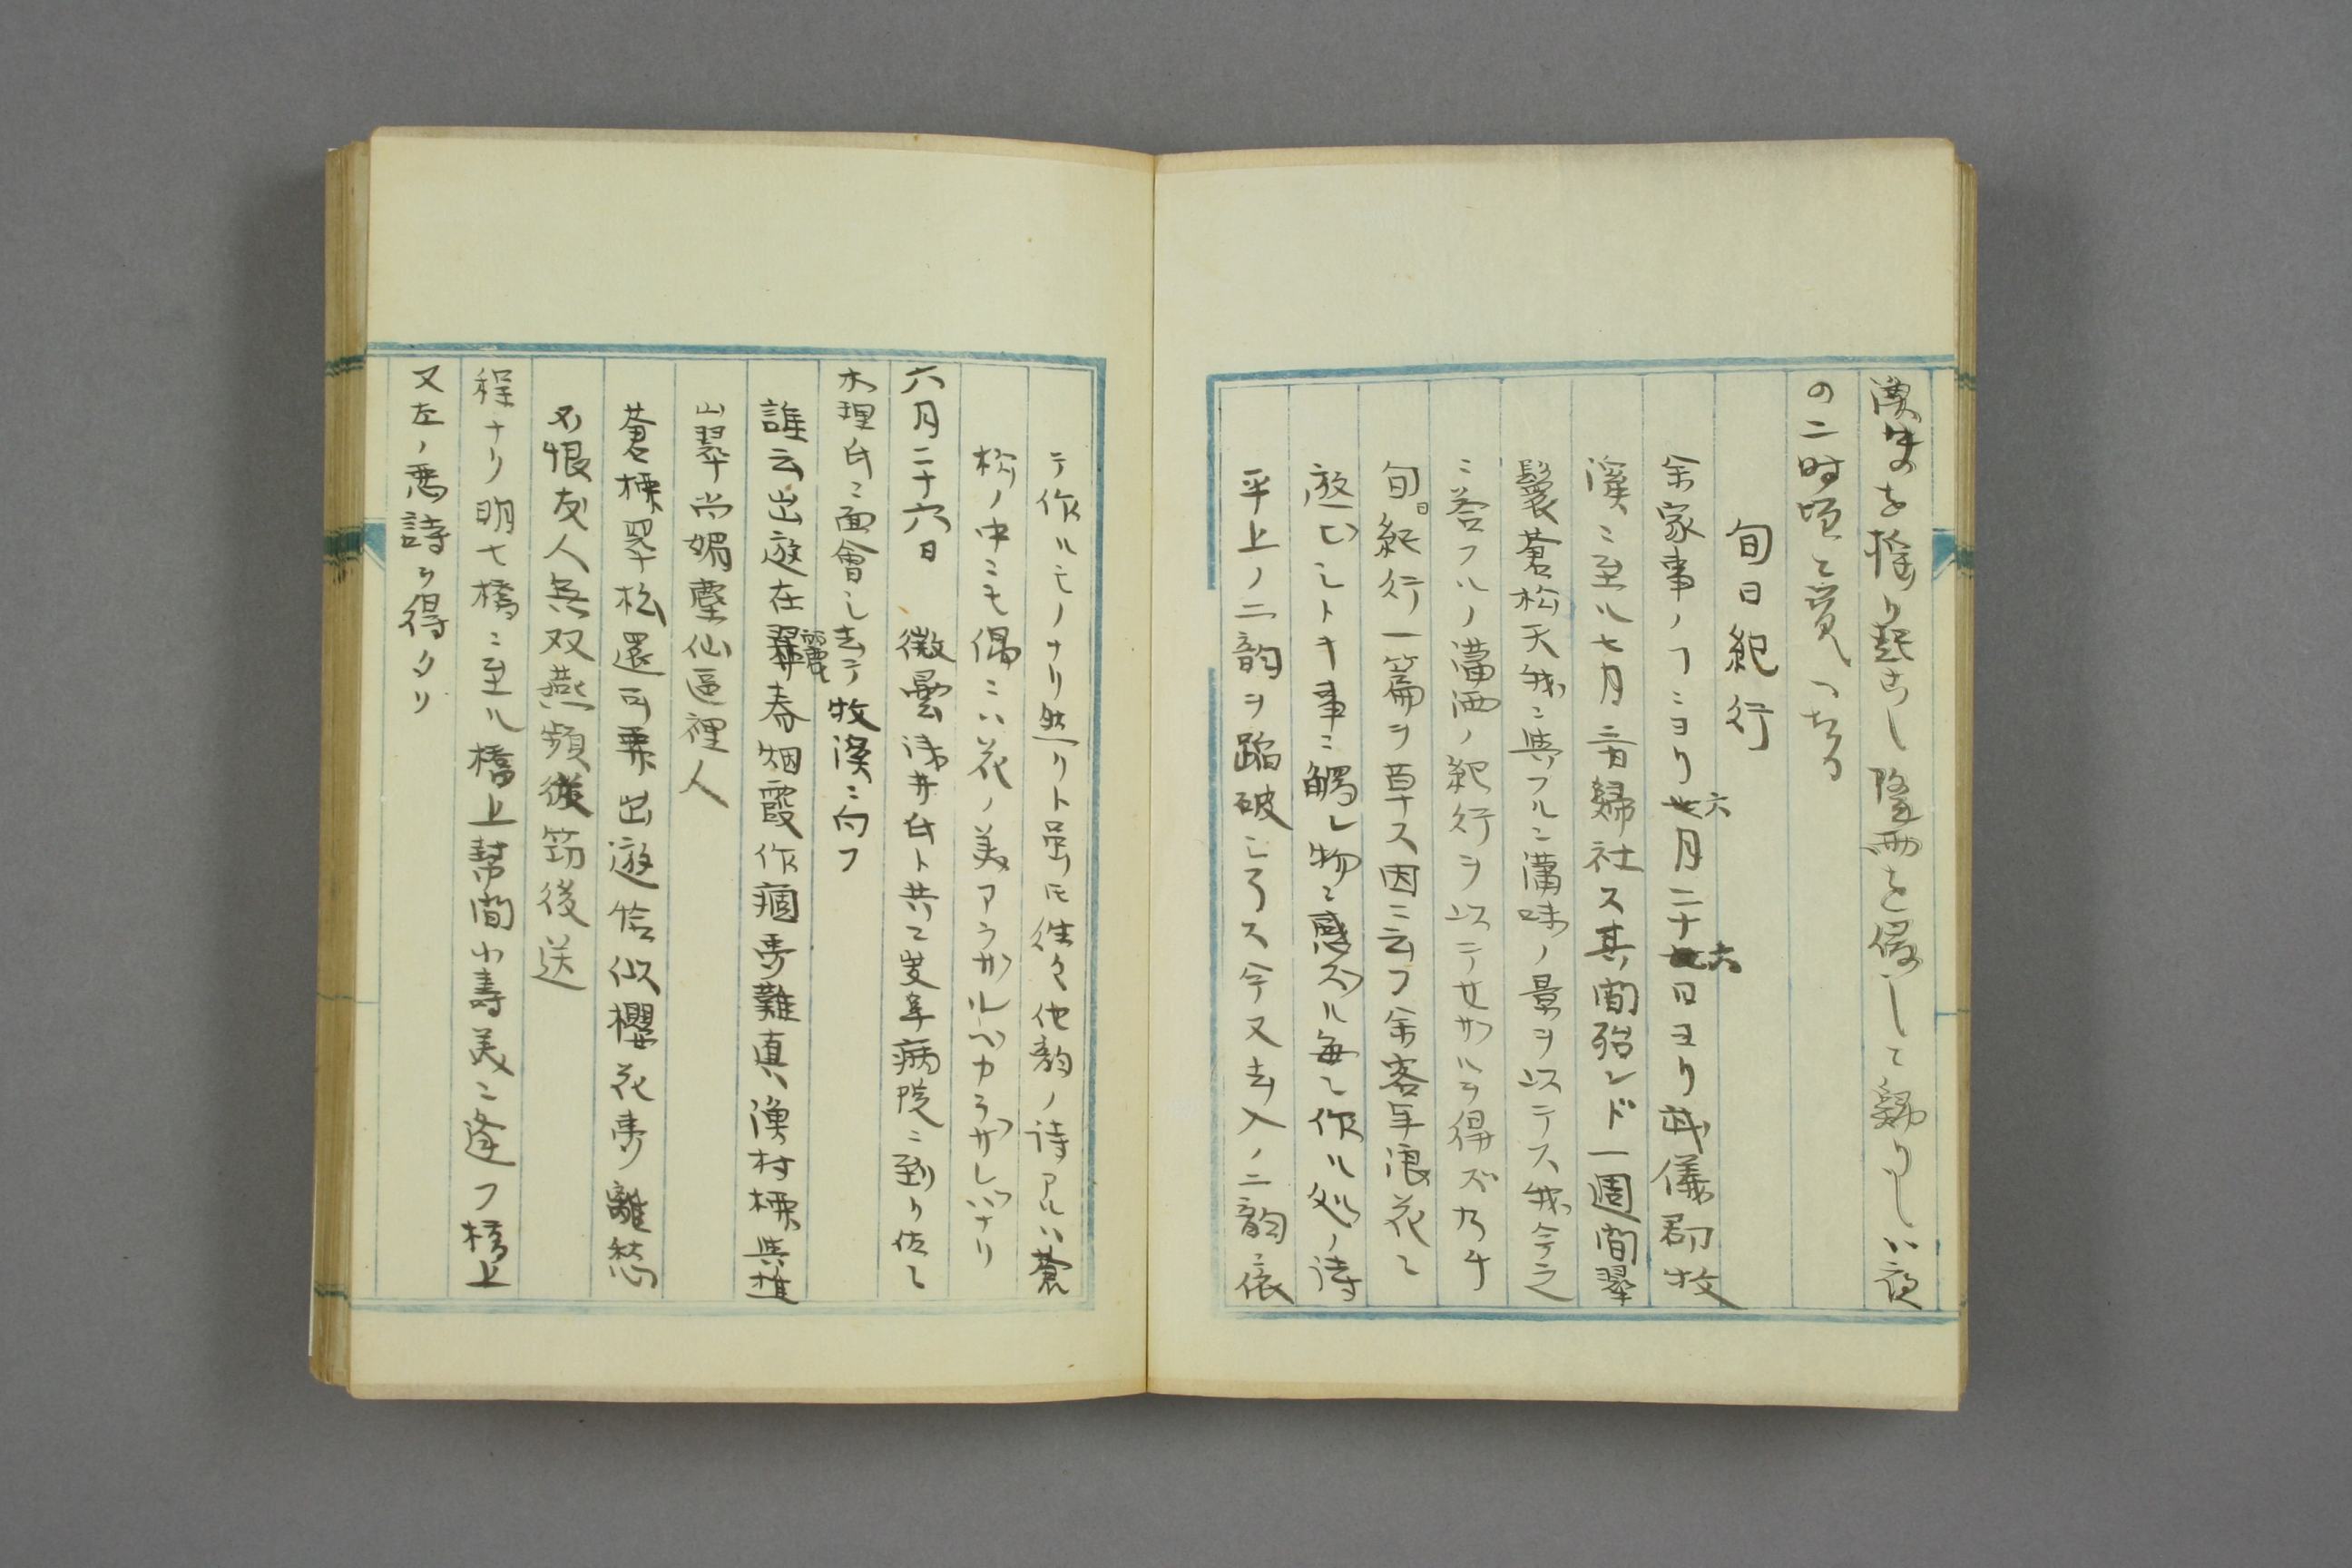 漁生のを揺り起こし隆雨を侵して歸りしハ夜
の二時頃と覚へたり
旬日紀行
余家事ノフニヨリ六月二十六日ヨリ武儀郡牧
溪ニ至ル七月三日歸社ス其間殆ンド一週間翠
鬟蒼松天我ニ與フルニ瀟味ノ景ヲ以テス我今之
ニ答フルノ瀟洒ノ紀行ヲ以テセザルヲ得ズ乃チ
旬日紀行一篇ヲ草ス因ニ云フ余客年浪花ニ
遊ビシトキ事ニ觸レ物ニ感ズル毎ニ作ル処ノ詩
平上ノ二韵ヲ踏破シ了ス今又去入ノ二韵ニ依
テ作ルモノナリ然リト虽ドモ往々他韵ノ詩アルハ蒼
松ノ中ニモ偶ニハ花ノ美アラザルベカラザレバナリ
六月二十六日 微曇 浅井氏ト共ニ岐阜病院ニ到リ佐々
木理氏ニ面會シ去テ牧溪ニ向フ
誰云出遊在麗春烟霞作痼夢難真漁村標與樵
山翠尚媚塵仙區裡人
蒼標翠松還可乗出遊恰似櫻花夢離愁
不恨友人無双燕頻後筇後送
程ナリ明七橋ニ至ル橋上幇間小壽美ニ逢フ橋上
又左ノ悪詩ヲ得タリ